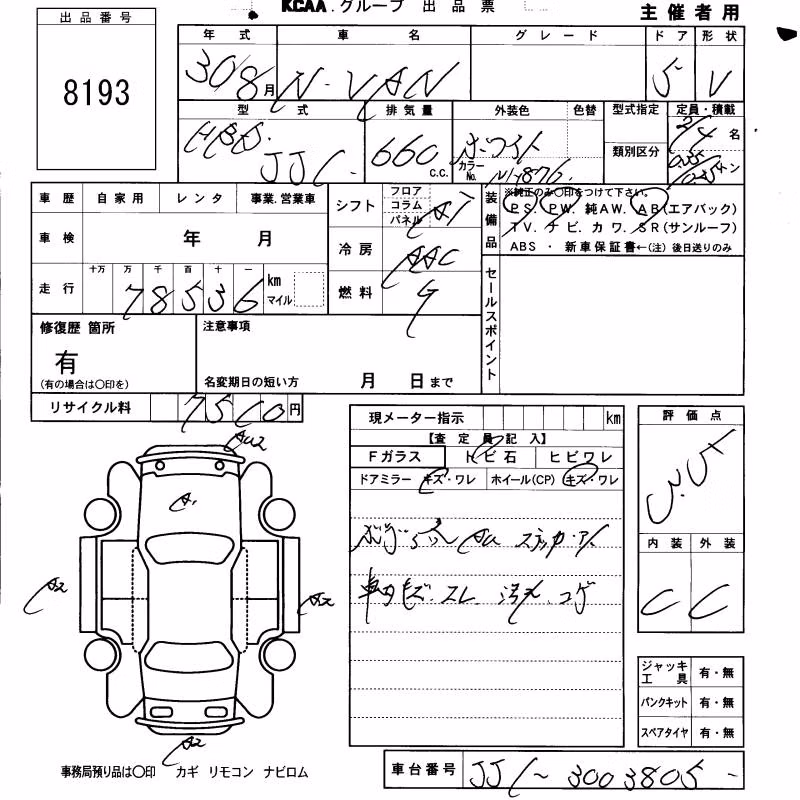 KCAA.グループ 出品票
主催者用
出品番号
8193
年式 車名 グレード ドア 形状
30/8月 N-VAN 5 V
型式 排気量 外装色 色替 型式指定 定員・積載
HBD. JJ1- 660 c.c. ホワイト 2/4 名
類別区分
カラーNo. NH-876.
車歴 自家用 レンタ 事業.営業車
シフト フロア コラム パネル AT
装備品
※純正のみ○印をつけて下さい。
PS. PW. 純AW. AB(エアバック)
TV. ナビ. カワ. SR(サンルーフ)
ABS ・ 新車保証書←(注) 後日送りのみ
車検 年 月
冷房 AAC
走行 十万 万 千 百 十 一
78536 km マイル
燃料 G
セールスポイント
修復歴 箇所
有
(有の場合は○印を)
注意事項
名変期日の短い方 月 日まで
リサイクル料 7510円
現メーター指示 km
【査定員記入】
Fガラス トビ石 ヒビワレ
ドアミラー キズ・ワレ ホイール(CP) キズ・ワレ
車内キズ.スレ 汚れ.コゲ
評価点
内装 外装
C C
AU2
A1
A2
A2
A2
ジャッキ工具 有・無
パンクキット 有・無
スペアタイヤ 有・無
事務局預り品は○印 カギ リモコン ナビロム
車台番号 JJ1-3003805-